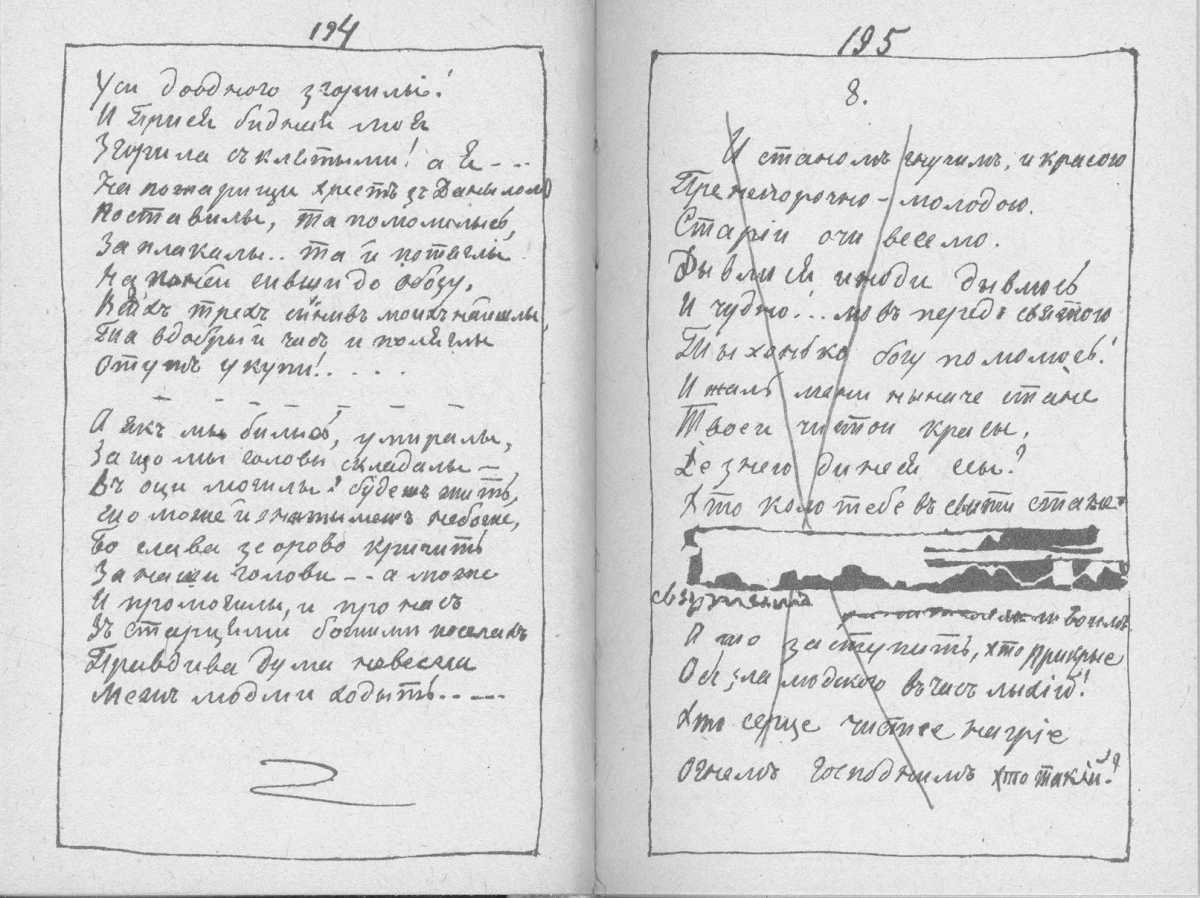 194
Уси доодного згорилы!
И Прися бидная моя
Згорила съ клятыми! а я - - -
На пожарищи хрестъ зъ Даныломъ
Поставилы, та помолылысь,
Заплакалы.. та й потяглы
На коней сивши до обозу,
Всихъ трехъ сынивъ моихъ найшлы,
Та вдобрый часъ и поляглы
Отутъ укупи! . . . .
А якъ мы былысь, умиралы,
За що мы головы складалы –
Въ оци могилы? будешъ жить,
то може й знатымешъ небоже,
Бо слава здорово крычить
За наши головы - - а може
И про могилы, и про насъ
Зъ старцями божими
Правдива дума невесела
Межъ людми ходыть. . - —
195
8.
И станомъ гнучимъ, и красою
Пренепорочно – молодою.
Старіи очи веселю.
Дывлюся иноди дывлюсь
И чудно!... мовъ передъ святою
Тыхонько богу помолюсь!
И жаль мени ныначе стане
Твоеи чистои красы,
Де знею динеся сы?
Хто коло тебе въ свити стане
свзятый
А хто заступить, хто прикрые
Одъ зла людского въ часъ лыхій!
Хто серце чистее нагріе
Огнемъ господнимъ хто такій!?